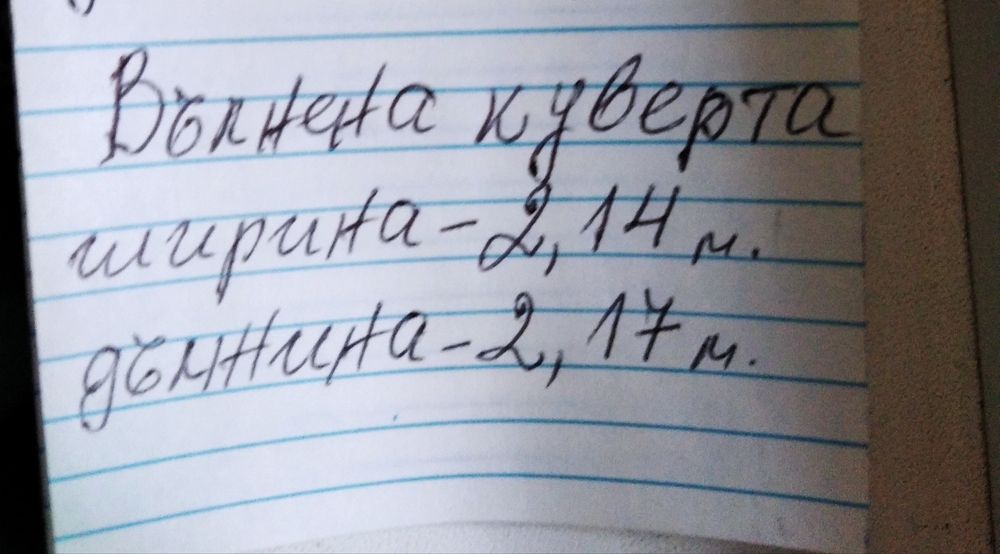 Вълнена куверта
ширина - 2,14 м.
дължина - 2,17 м.